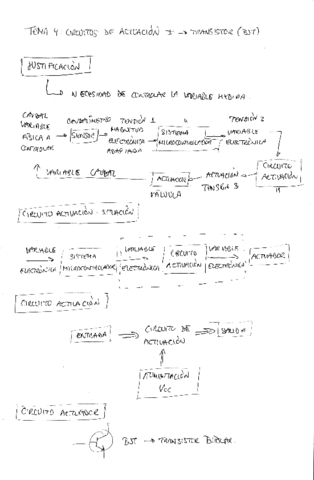 TEMA 4 CIRCUITOS DE ACTIVACIÓN I → TRANSISTOR (BJT)
JUSTIFICACIÓN
→ NECESIDAD DE CONTROLAR LA VARIABLE MEDIDA
CAUDAL CAUDALÍMETRO TENSIÓN 1 TENSIÓN 2
VARIABLE FÍSICA A CONTROLAR → SENSOR → MAGNITUD ELECTRÓNICA ADAPTADA → SISTEMA MICROCONTROLADOR → VARIABLE ELECTRÓNICA
CIRCUITO ACTIVACIÓN
VARIABLE CAUDAL ← ACTUADOR ← ACTUACIÓN
VÁLVULA TENSIÓN 3
CIRCUITO ACTIVACIÓN - SITUACIÓN
VARIABLE ELECTRÓNICA → SISTEMA MICROCONTROLADOR → VARIABLE ELECTRÓNICA → CIRCUITO ACTIVACIÓN → VARIABLE ELECTRÓNICA → ACTUADOR
CIRCUITO ACTIVACIÓN
ENTRADA → CIRCUITO DE ACTIVACIÓN → SALIDA
ALIMENTACIÓN
Vcc
CIRCUITO ACTUADOR
BJT → TRANSISTOR BIPOLAR